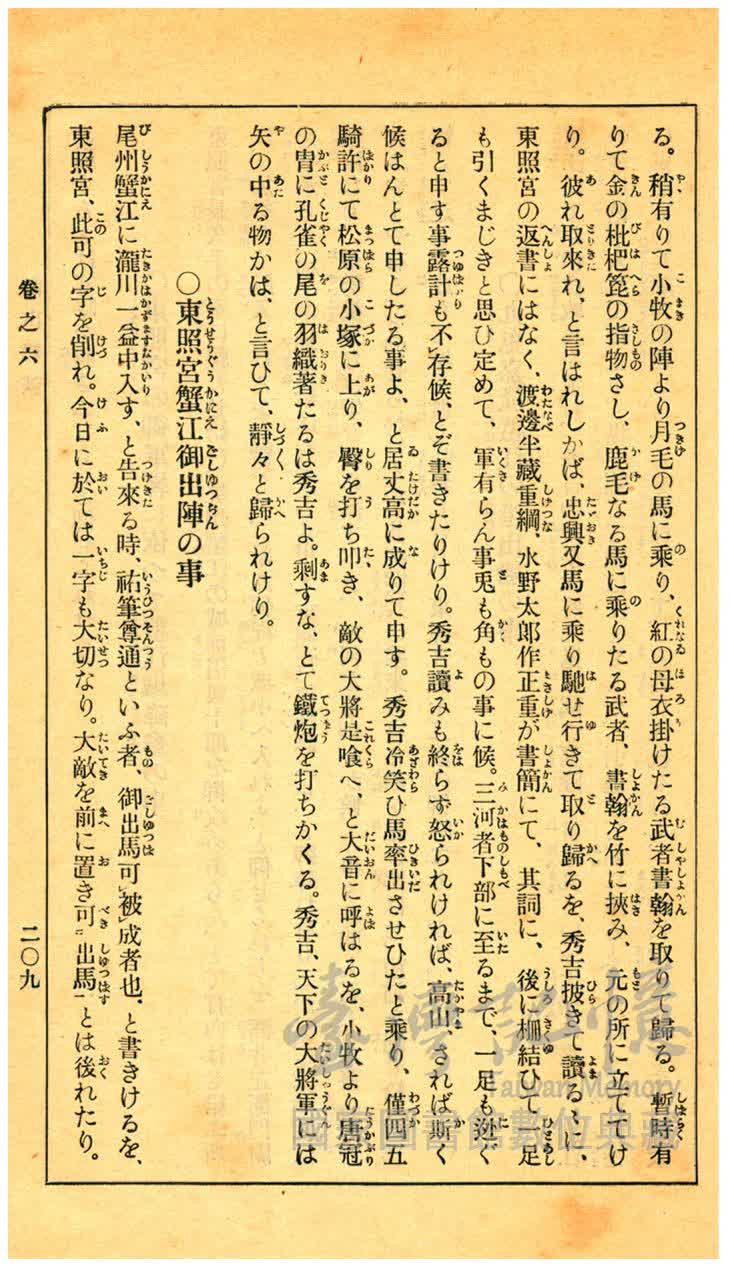 る。稍有りて小牧の陣より月毛の馬に乘り、紅の母衣掛けたる武者書翰を取りて歸る。暫時有
りて金の枇杷箆の指物さし、鹿毛なる馬に乘りたる武者、書翰を竹に挾み、元の所に立ててけ
り。彼れ取來れ、と言はれしかば、忠興又馬に乘り馳せ行きて取り歸るを、秀吉披きて讀るゝに、
東照宮の返書にはなく、渡邊半藏重綱、水野太郎作正重が書簡にて、其詞に、後に柵結ひて一足
も引くまじきと思ひ定めて、軍有らん事兎も角もの事に候。三河者下部に至るまで、一足も迯ぐ
ると申す事露計も不存候、とぞ書きたりけり。秀吉讀みも終らず怒られければ、高山、されば斯く
候はんとて申したる事よ、と居丈高に成りて申す。秀吉冷笑ひ馬率出させひたと乘り、僅四五
騎許にて松原の小塚に上り、臀を打ち叩き、敵の大將是喰へ、と大音に呼はるを、小牧より唐冠
の冑に孔雀の尾の羽織著たるは秀吉よ。剩すな、とて鐵炮を打ちかくる。秀吉、天下の大將軍には
矢の中る物かは、と言ひて、靜々と歸られけり。
○東照宮蟹江御出陣の事
尾州蟹江に瀧川一益中入す、と告來る時、祐筆尊通といふ者、御出馬可被成者也、と書きけるを、
東照宮、此可の字を削れ。今日に於ては一字も大切なり。大敵を前に置き可出馬とは後れたり。
卷之六
二〇九
臺灣記憶
Taiwan Memory
國家圖書館數位典藏